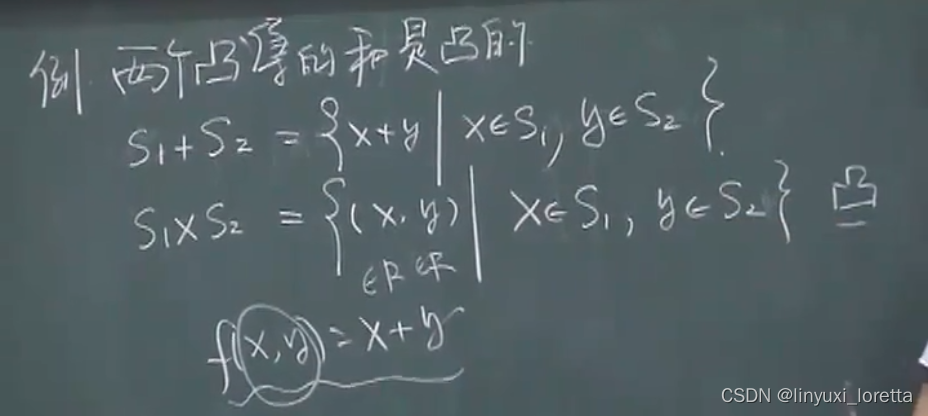 例. 两个凸集的和是凸的.
S₁+S₂ = {x+y | x∈S₁, y∈S₂}.
S₁×S₂ = {(x, y) | x∈S₁, y∈S₂} 凸
∈R ∈R
f(x,y) = x+y
CSDN @linyuxi_loretta